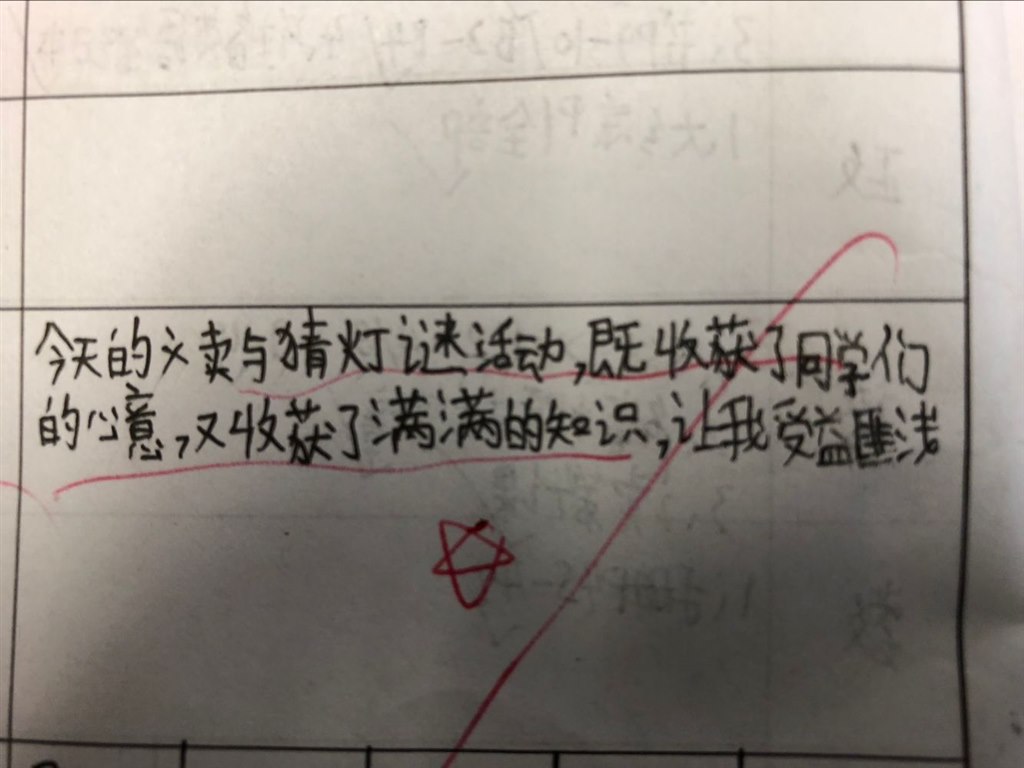 今天的义卖与猜灯谜活动,既收获了同学们
的心意,又收获了满满的知识,让我受益匪浅